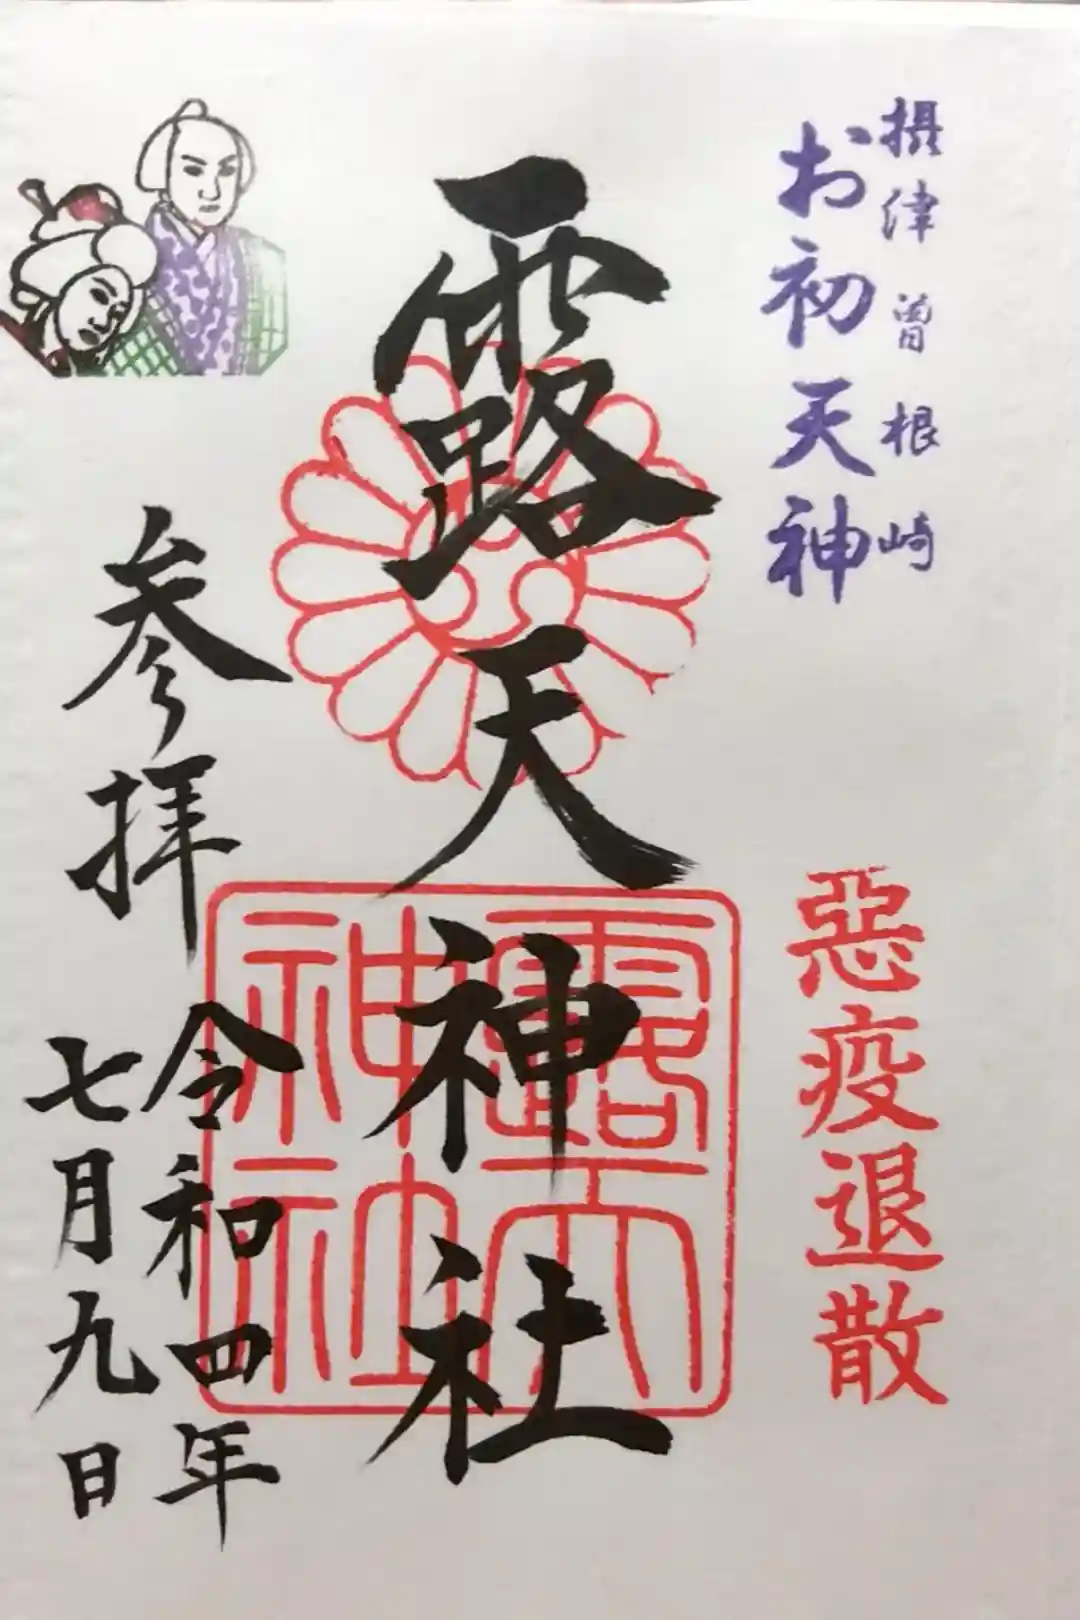 摂津曽根崎
お初天神
惡疫退散
露天神社
露天
神社
参拝
令和四年
七月九日